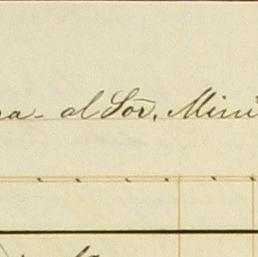 al Sor. Mini